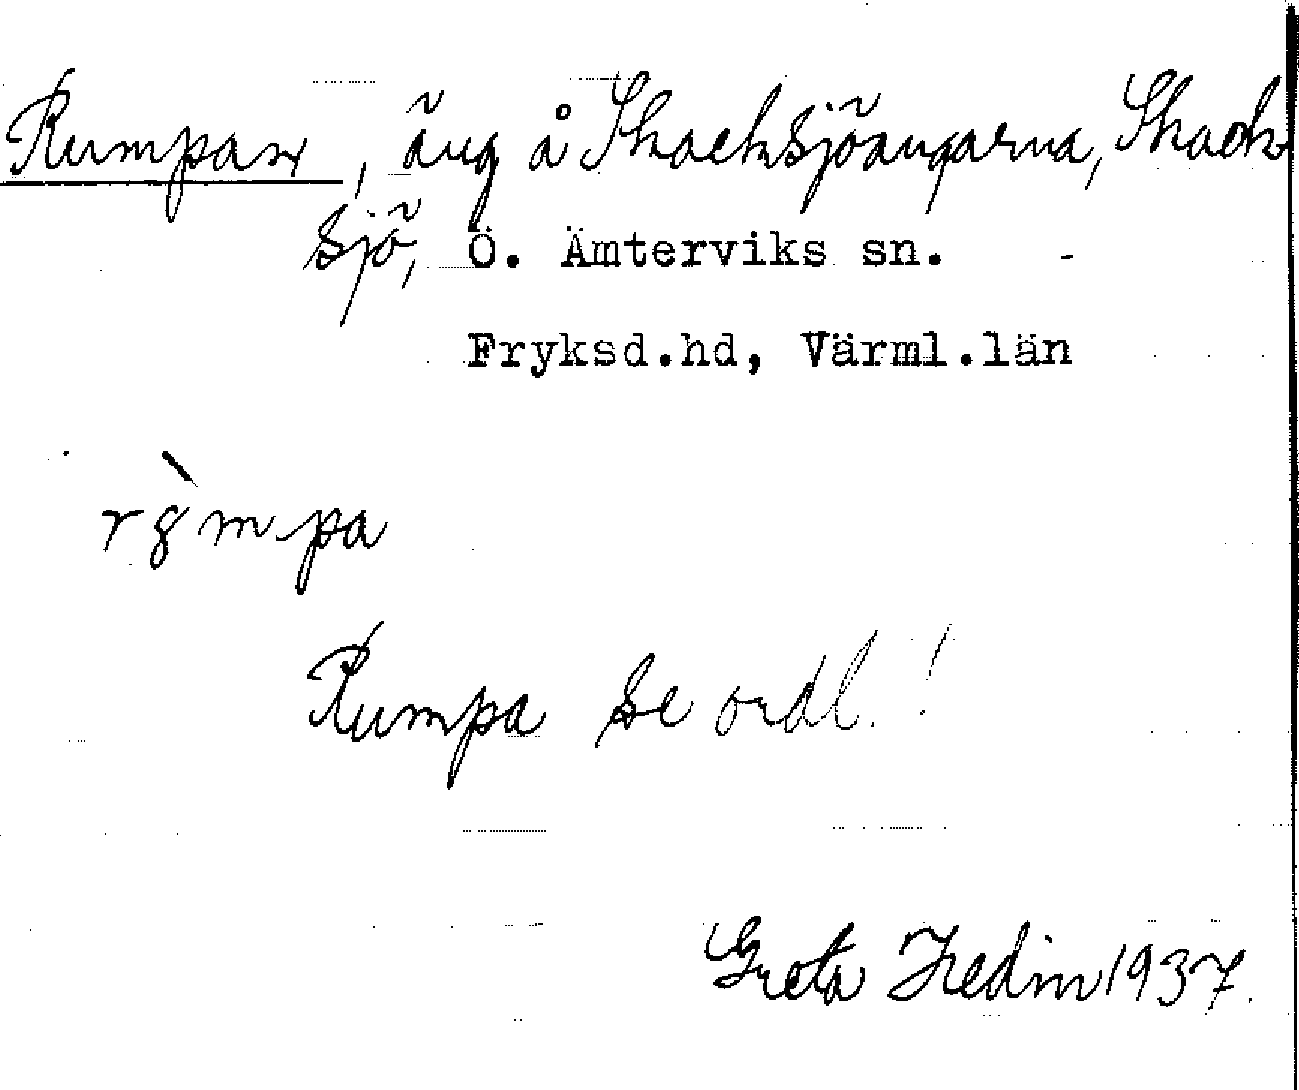 Rumpan, äng å Skacksjöängarna, Skack
sjö, Ö. Ämterviks sn.
Fryksd.hd, Värml.län
r8̀mpa
Rumpa se ordl.!
Greta Hedin 1937.